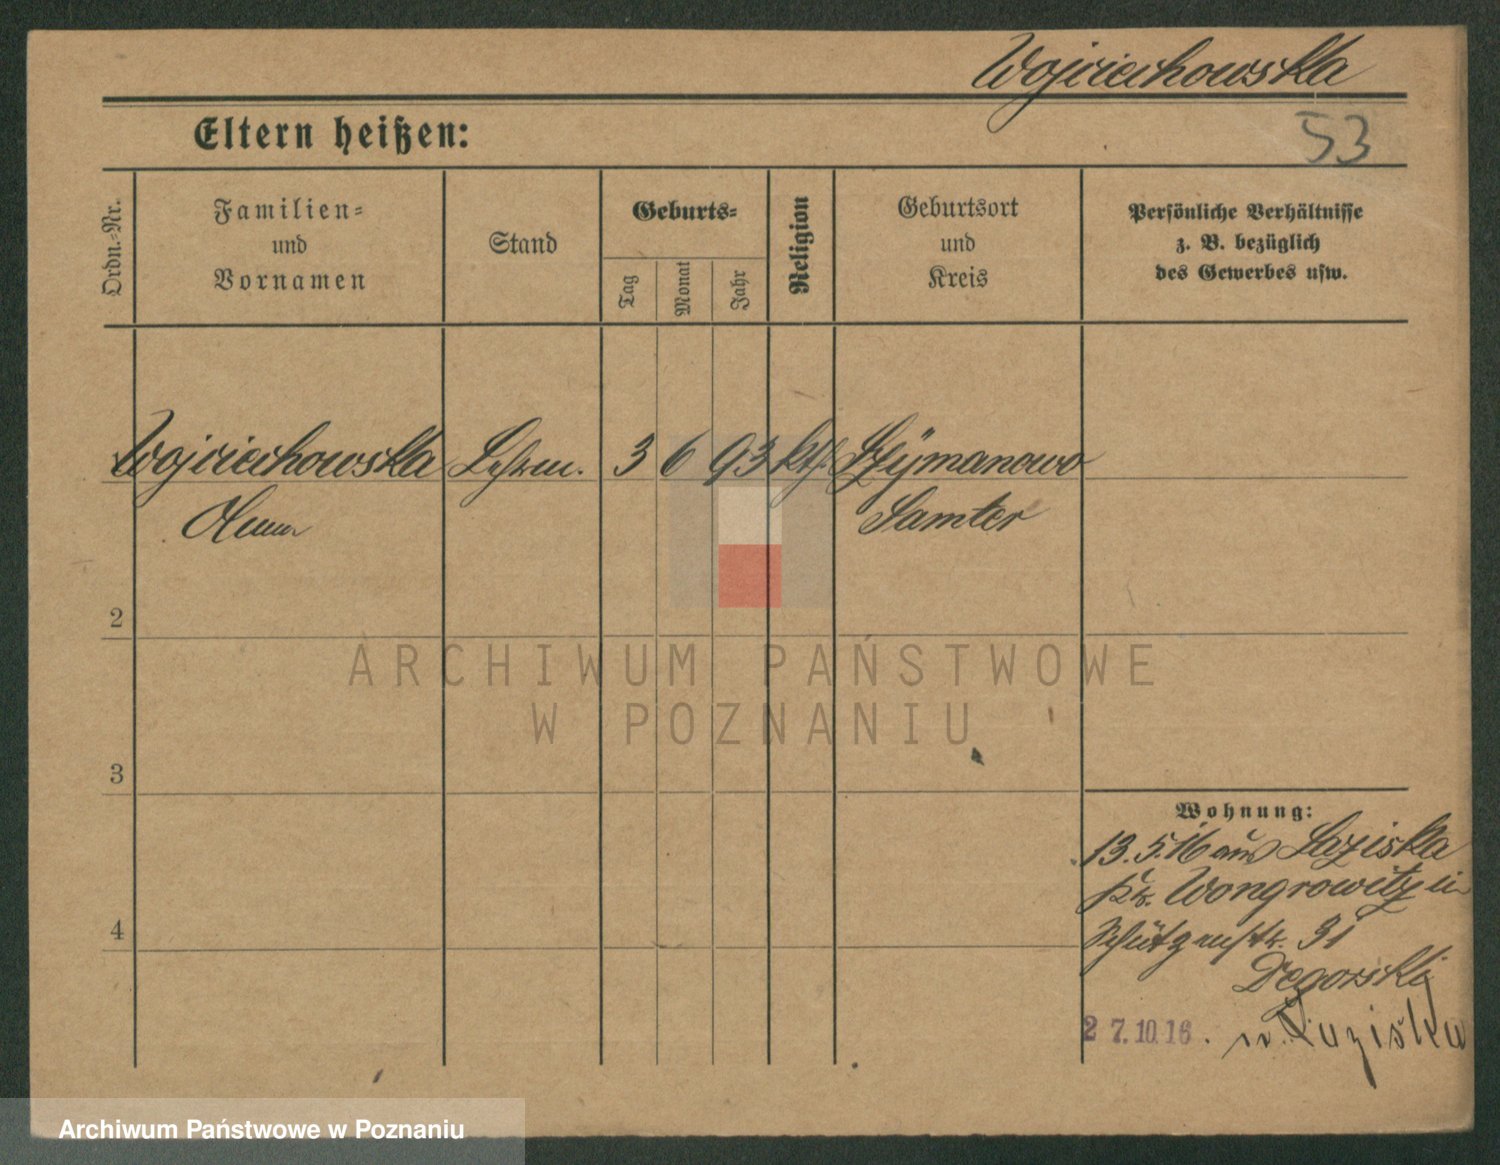 Wojciechowska
Eltern heißen:
53
Ordn.-Nr.
Familien-
und
Vornamen
Stand
Geburts-
Tag
Monat
Jahr
Religion
Geburtsort
und
Kreis
Persönliche Verhältnisse
z. B. bezüglich
des Gewerbes usw.
Wojciechowska 3 6 93 kth. Szÿmanowo
Samter
2
ARCHIWUM PAŃSTWOWE
W POZNANIU
3
Wohnung:
13.5.16 aus Laziska
Kr. Wongrowitz in
4
Schützenstr. 31
Degorski
27.10.16. n. Laziska
Archiwum Państwowe w Poznaniu